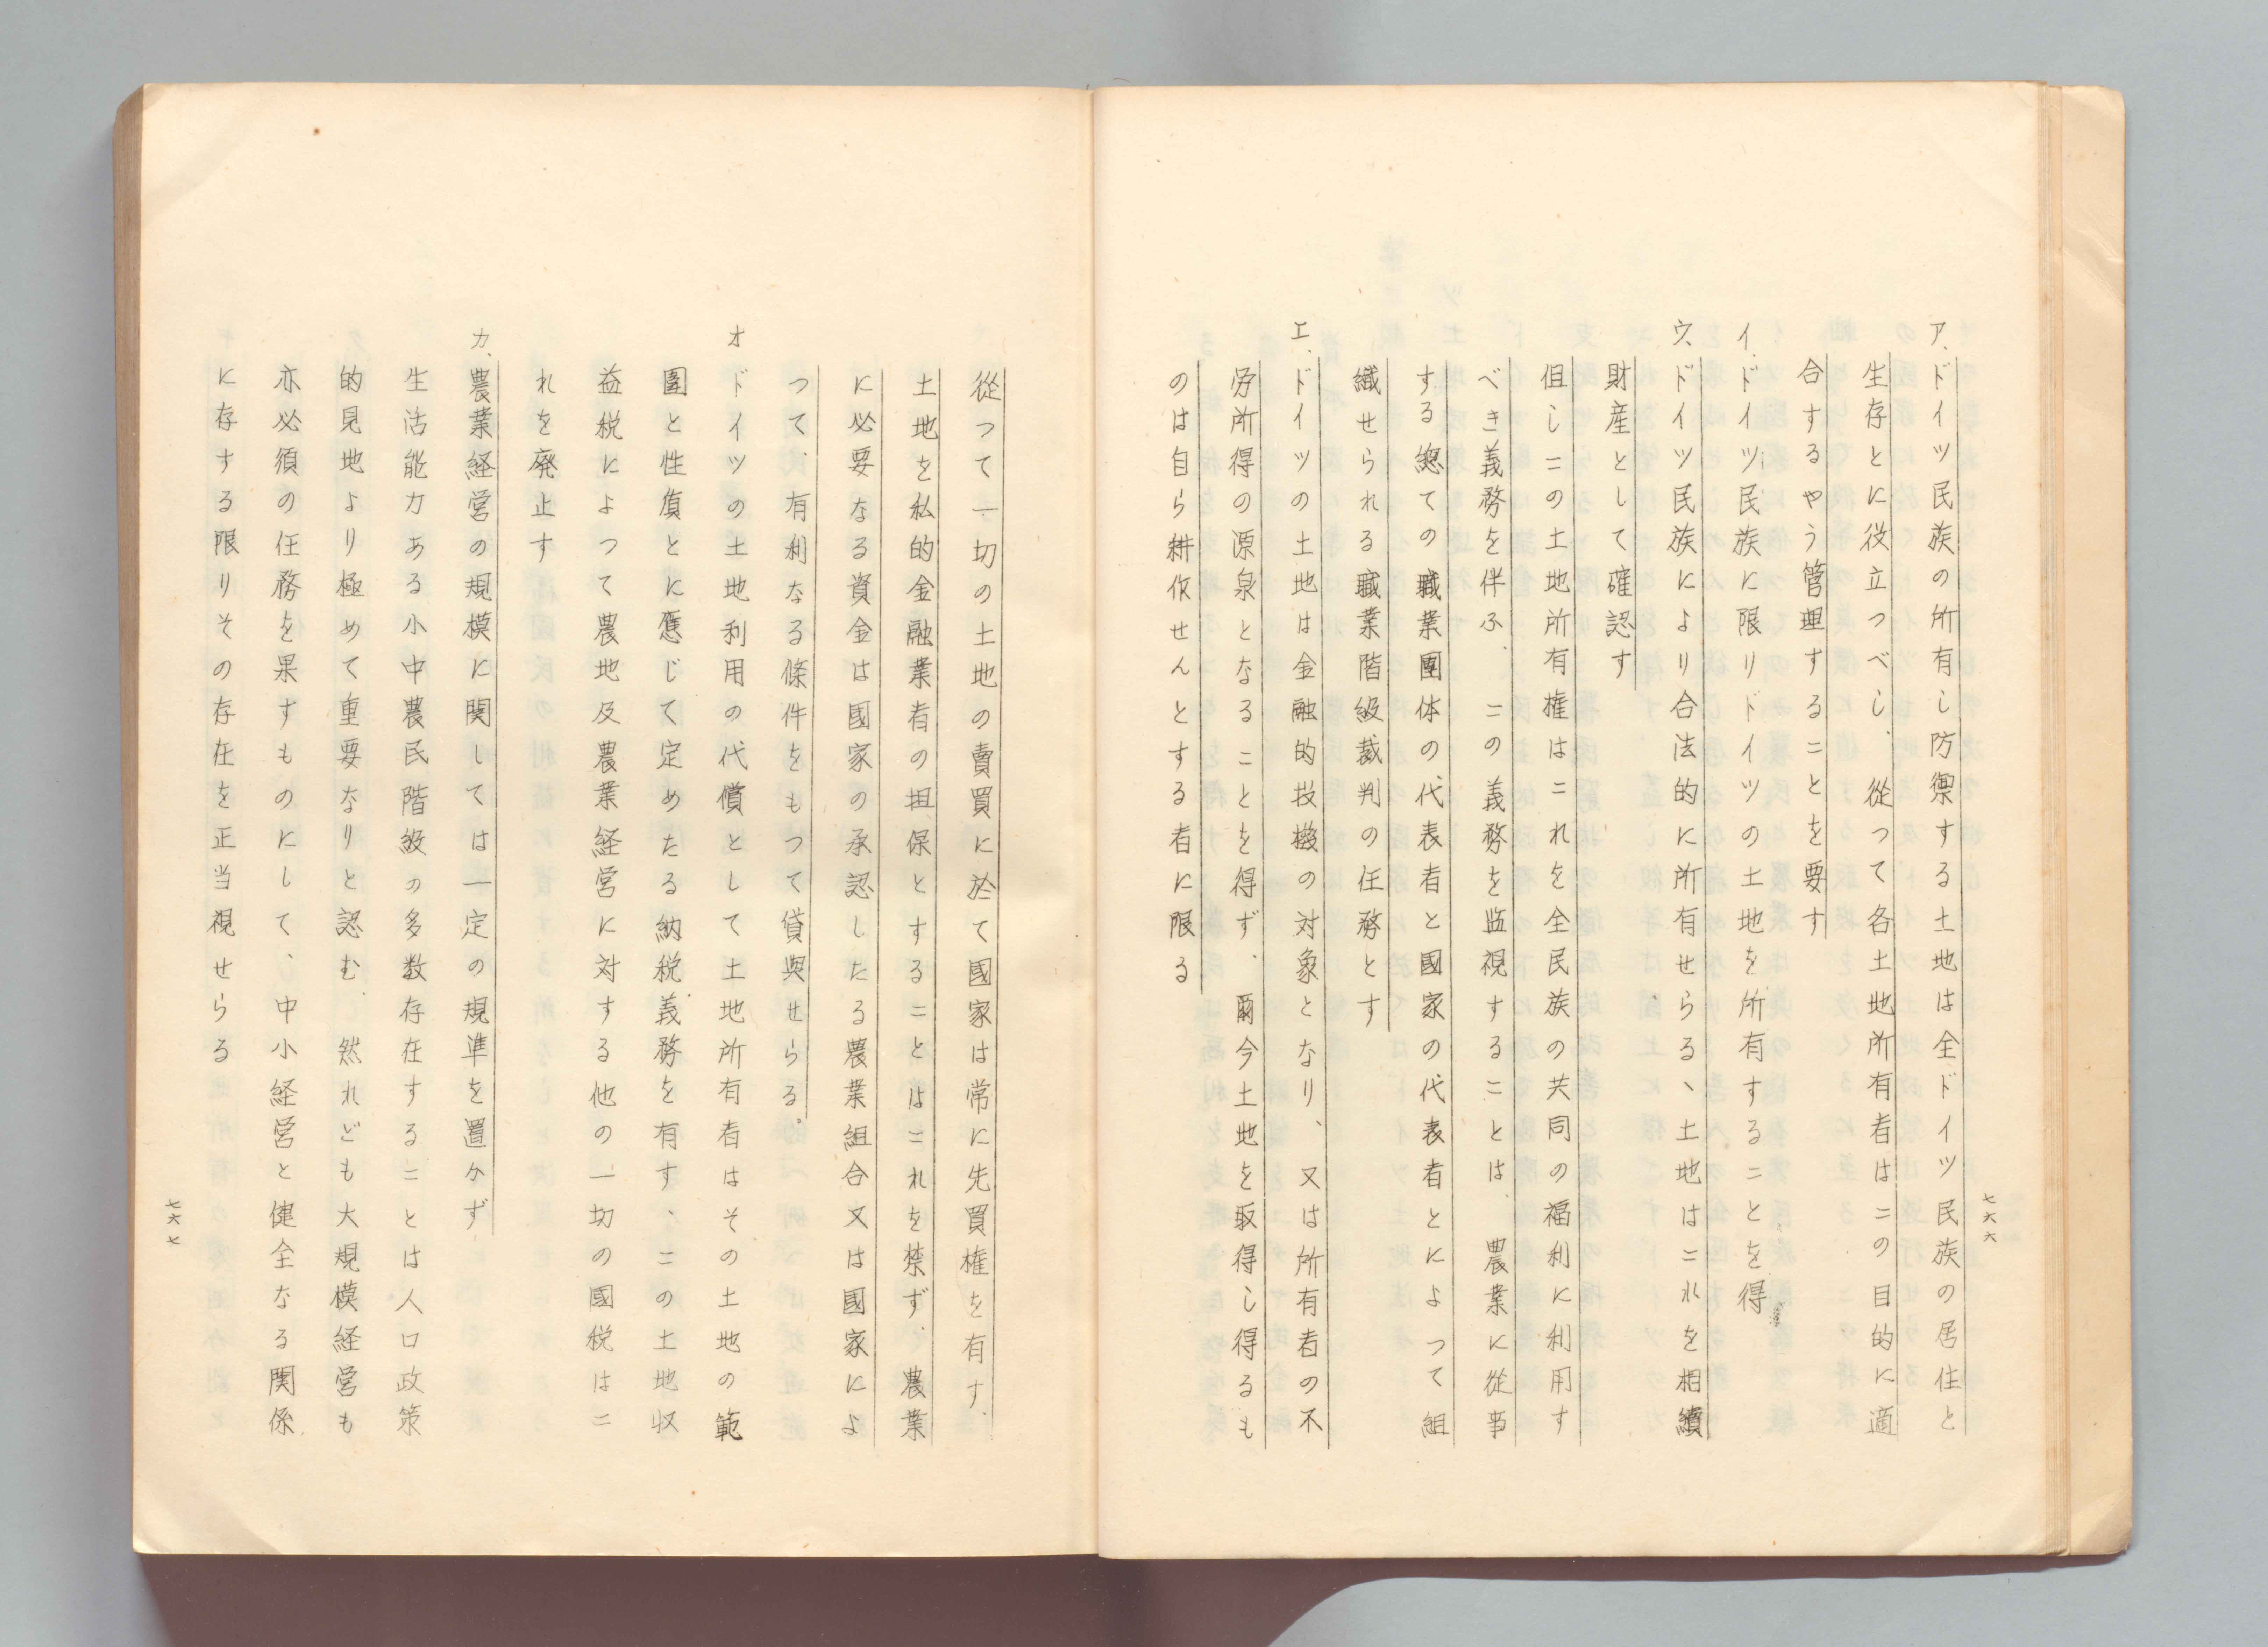 七六六
ア、ドイツ民族の所有し防禦する土地は全ドイツ民族の居住と
生存とに役立つべし、從つて各土地所有者はこの目的に適
合するやう管理することを要す
イ、ドイツ民族に限りドイツの土地を所有することを得
ウ、ドイツ民族により合法的に所有せらる、土地はこれを相續
財産として確認す
但しこの土地所有権はこれを全民族の共同の福利に利用す
べき義務を伴ふ、この義務を監視することは、農業に從事
する總ての職業團体の代表者と國家の代表者とによつて組
織せられる職業階級裁判の任務とす
エ、ドイツの土地は金融的投機の対象となり、又は所有者の不
労所得の源泉となることを得ず、爾今土地を取得し得るも
のは自ら耕作せんとする者に限る
從つて一切の土地の賣買に於て國家は常に先買権を有す、
土地を私的金融業者の担保とすることはこれを禁ず、農業
に必要なる資金は國家の承認したる農業組合又は國家によ
つて、有利なる條件をもつて貸與せらる。
オ ドイツの土地利用の代償として土地所有者はその土地の範
圍と性質とに應じて定めたる納税義務を有す、この土地収
益税によつて農地及農業経営に対する他の一切の國税はこ
れを廃止す
カ、農業経営の規模に関しては一定の規準を置かず、
生活能力ある小中農民階級の多数存在することは人口政策
的見地より極めて重要なりと認む、然れども大規模経営も
亦必須の任務を果すものにして、中小経営と健全なる関係
に存する限りその存在を正当視せらる
七六七